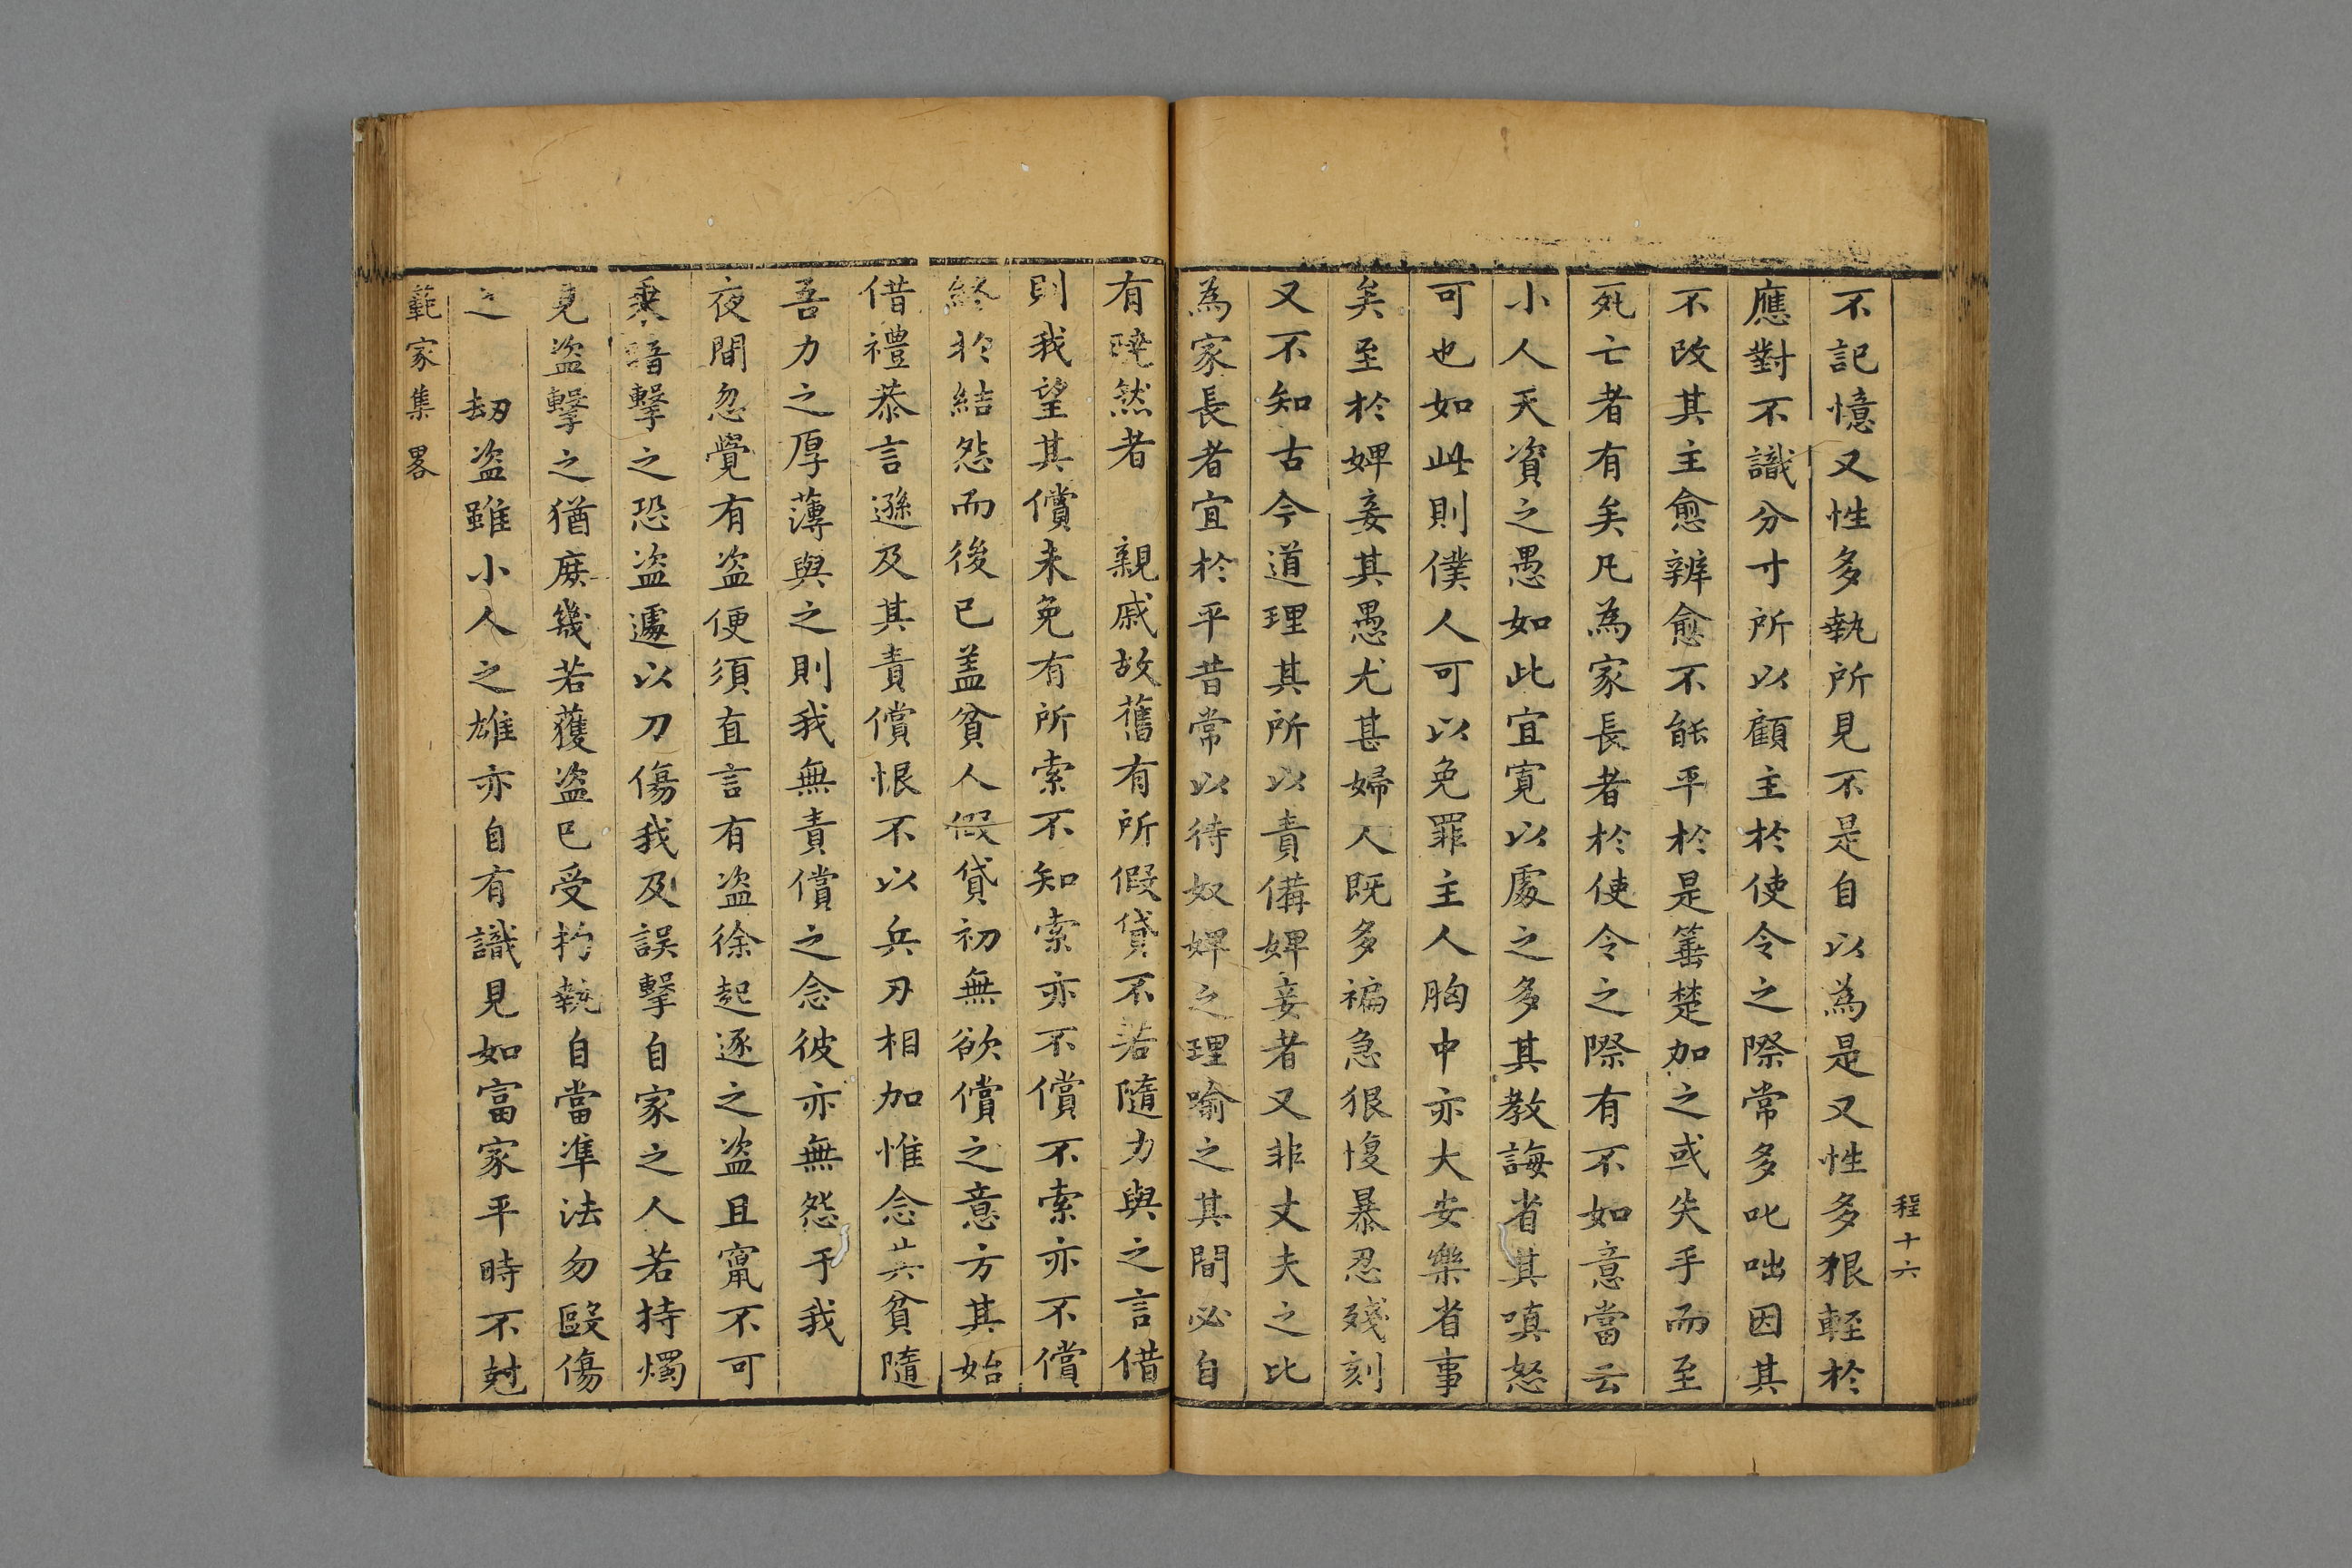 程十六
不記憶又性多執所見不是自以為是又性多狠輕於
應對不識分寸所以顧主於使令之際常多叱咄因其
不改其主愈辨愈不能平於是箠楚加之或失手而至
死亡者有矣凡為家長者於使令之際有不如意當云
小人天資之愚如此宜寬以處之多其教誨省其嗔怒
可也如此則僕人可以免罪主人胸中亦大安樂省事
矣至於婢妾其愚尤甚婦人既多褊急狠愎暴忍殘刻
又不知古今道理其所以責備婢妾者又非丈夫之比
為家長者宜於平昔常以待奴婢之理喻之其間必自
有曉然者　親戚故舊有所假貸不若隨力與之言借
則我望其償未免有所索不知索亦不償不索亦不償
終於結怨而後已盖貧人假貸初無欲償之意方其始
借禮恭言遜及其責償恨不以兵刃相加惟念其貧隨
吾力之厚薄與之則我無責償之念彼亦無怨于我
夜間忽覺有盜便須直言有盜徐起逐之盜且竄不可
乘暗擊之恐盜遽以刀傷我及誤擊自家之人若持燭
見盜擊之猶庶幾若獲盜已受拘執自當準法勿毆傷
之　劫盜雖小人之雄亦自有識見如富家平時不尅
範家集畧